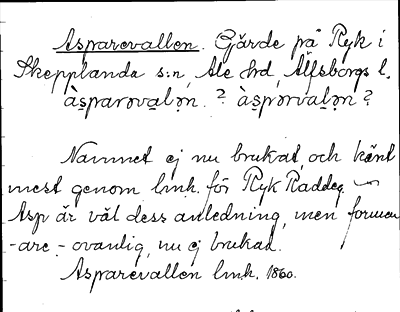 Asparevallen. Gärde på Ryk i
Skepplanda s:n, Ale hd, Älfsborgs l.
àsparəvalən. ? àspərvalən ?
Namnet ej nu brukat, och känt
mest genom lmh. för Ryk Raddeg.
Asp är väl dess anledning, men formen
-are- ovanlig, nu ej brukad.
Asparevallen lmh. 1860.